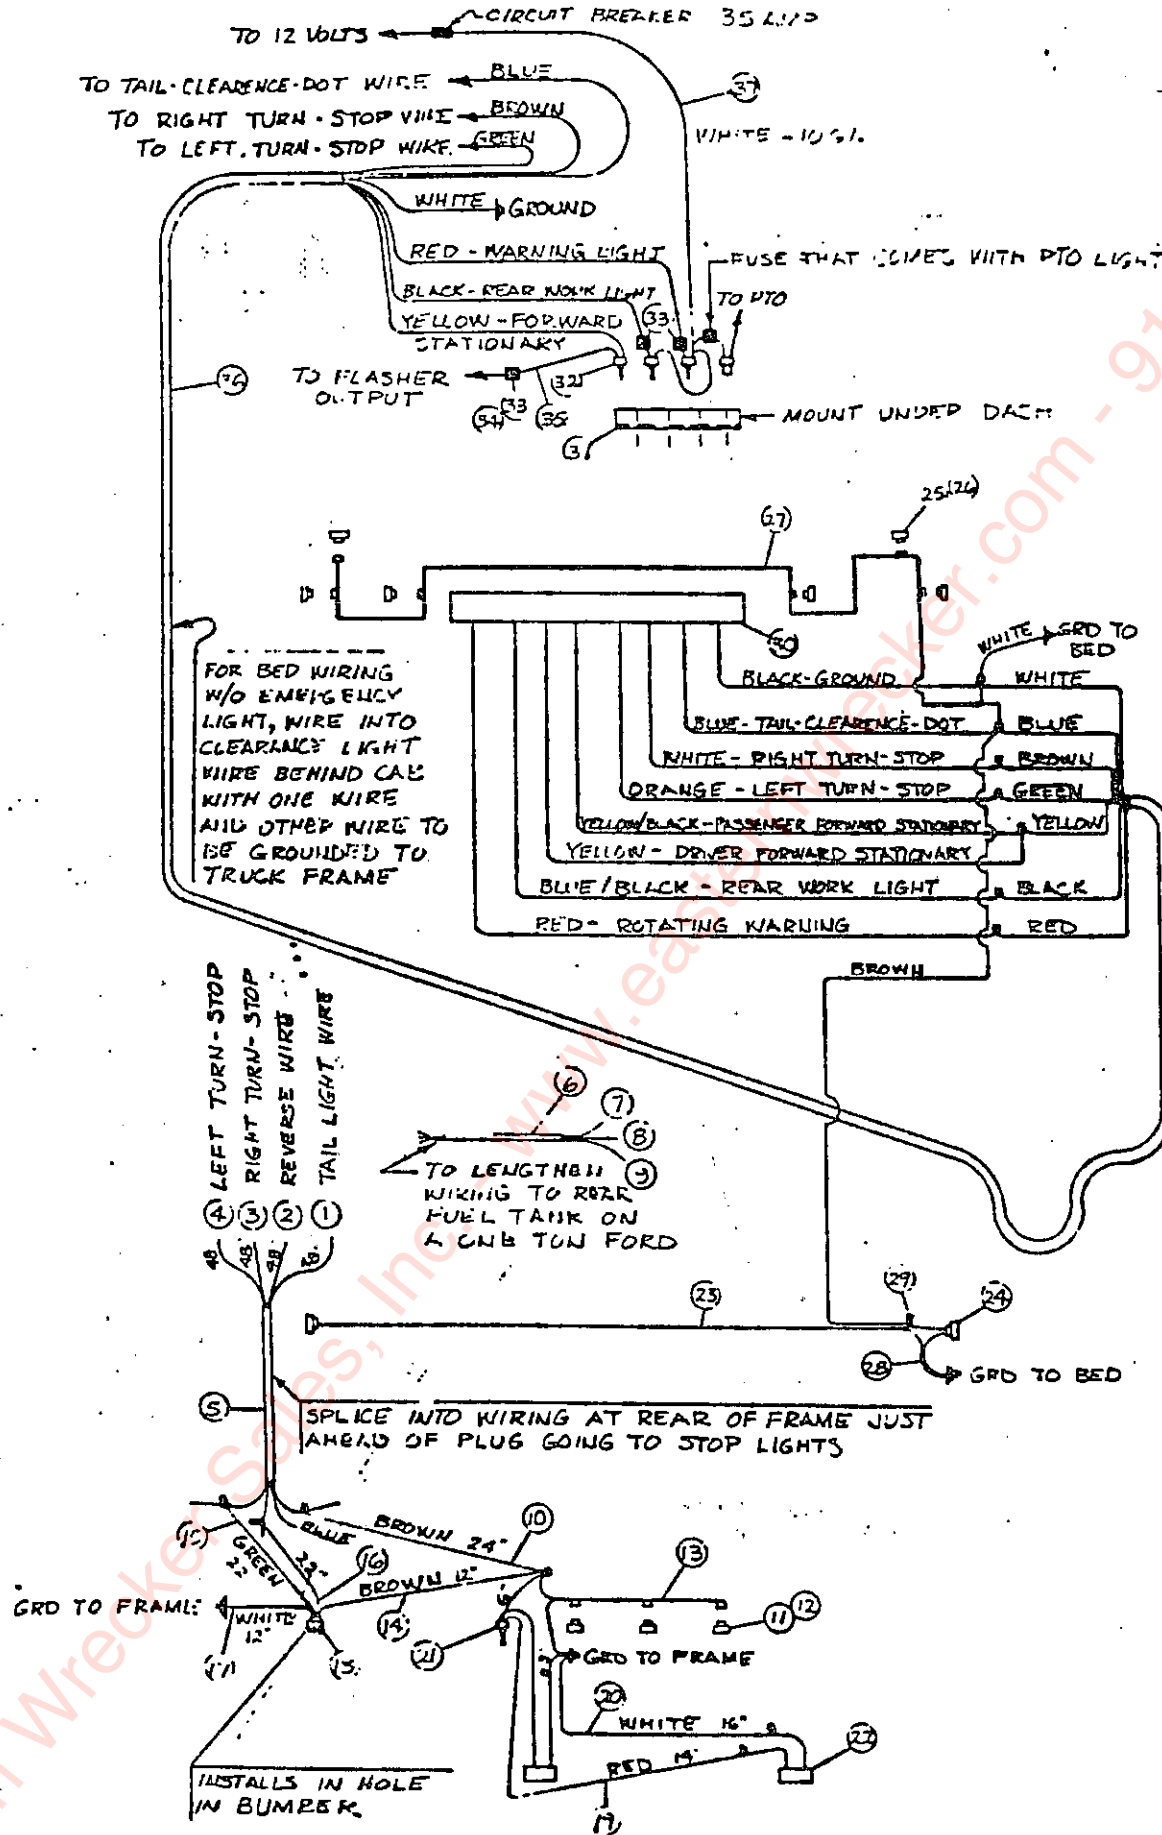 CIRCUIT BREAKER 35
TO 12 VOLTS
TO TAIL-CLEARENCE-DOT WIRE
BLUE
TO RIGHT TURN-STOP WIRE
BROWN
TO LEFT TURN-STOP WIRE
GREEN
37
WHITE - 10 GA.
WHITE
GROUND
RED - WARNING LIGHT
FUSE THAT COMES WITH PTO LIGHT
BLACK-REAR WORK LIGHT
TO PTO
33
YELLOW-FORWARD
STATIONARY
36
TO FLASHER
OUTPUT
32
34
33
35
MOUNT UNDER DASH
3
25
26
27
30
WHITE
GRD TO
BED
FOR BED WIRING
W/O EMERGENCY
LIGHT, WIRE INTO
CLEARANCE LIGHT
WIRE BEHIND CAB
WITH ONE WIRE
AND OTHER WIRE TO
BE GROUNDED TO
TRUCK FRAME
BLACK-GROUND
WHITE
BLUE-TAIL-CLEARENCE-DOT
BLUE
WHITE - RIGHT TURN-STOP
BROWN
ORANGE - LEFT TURN-STOP
GREEN
YELLOW/BLACK-PASSENGER FORWARD STATIONARY
YELLOW
YELLOW - DRIVER FORWARD STATIONARY
BLUE/BLACK - REAR WORK LIGHT
BLACK
RED - ROTATING WARNING
RED
BROWN
LEFT TURN-STOP
RIGHT TURN-STOP
REVERSE WIRE
TAIL LIGHT WIRE
4
3
2
1
48
48
48
48
6
7
8
9
TO LENGTHEN
WIRING TO REAR
FUEL TANK ON
A ONE TON FORD
23
29
24
28
GRD TO BED
5
SPLICE INTO WIRING AT REAR OF FRAME JUST
AHEAD OF PLUG GOING TO STOP LIGHTS
BLUE
BROWN 24"
10
GREEN
22
22"
16
BROWN 12"
14
13
11
12
GRD TO FRAME
WHITE
12"
17
15
21
GRD TO FRAME
20
WHITE 16"
22
RED 14"
19
INSTALLS IN HOLE
IN BUMPER
Wrecker Sales, Inc. - www.easternwrecker.com - 91